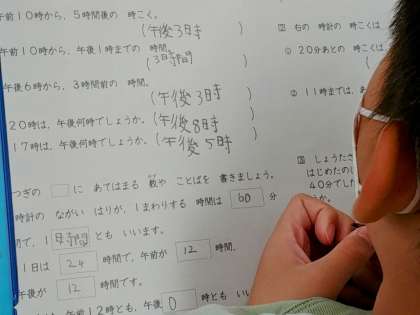 午前10時から、5時間後の 時こく。
(午後3時)
午前10時から、午後1時までの 時間。
(3時間)
午後6時から、3時間前の 時こく。
(午後3時)
20時は、午後何時でしょうか。(午後8時)
17時は、午後何時でしょうか。(午後5時)
つぎの □ に あてはまる 数や ことばを 書きましょう。
時計の ながい はりが、1まわりする 時間は 60 分
で、1 時間 とも いいます。
1日は 24 時間で、午前が 12 時間、
午後が 12 時間です。
午前 12時とも、午後 0 時とも い
2 右の 時計の 時こくは
① 20分あとの 時こくは
② 11時までは、あ
3 しょうた
はじめたの
40分でし
うか。